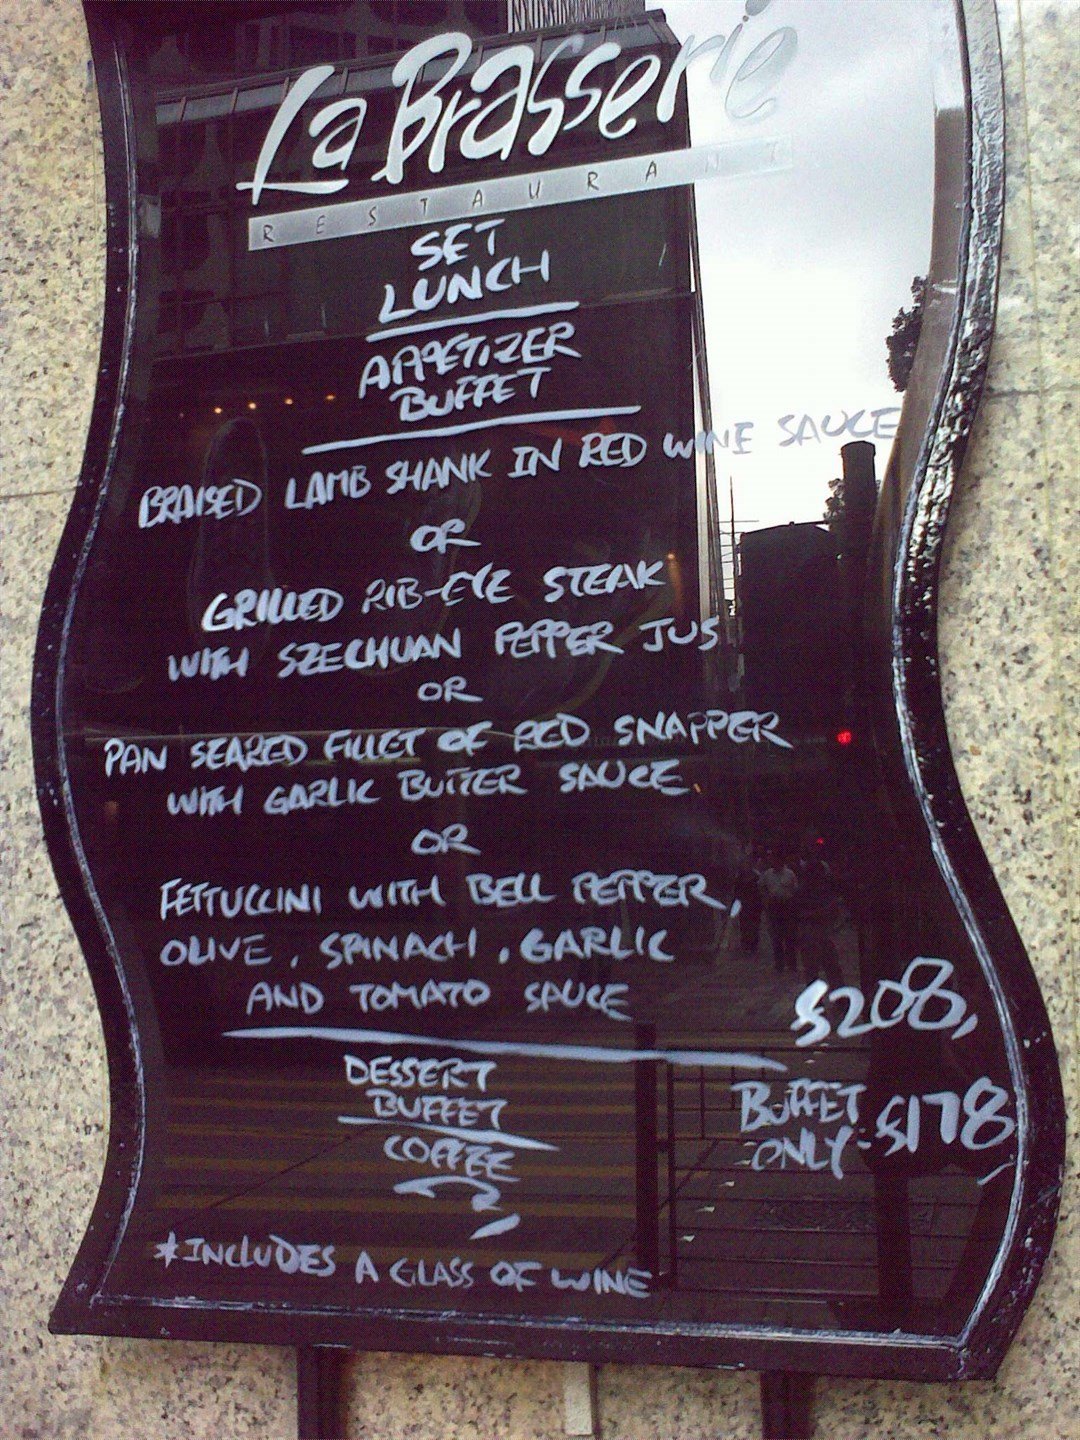 La Brasserie
RESTAURANT
SET
LUNCH
APPETIZER
BUFFET
BRAISED LAMB SHANK IN RED WINE SAUCE
OR
GRILLED RIB-EYE STEAK
WITH SZECHUAN PEPPER JUS
OR
PAN SEARED FILLET OF RED SNAPPER
WITH GARLIC BUTTER SAUCE
OR
FETTUCCINI WITH BELL PEPPER,
OLIVE, SPINACH, GARLIC
AND TOMATO SAUCE
$208,
DESSERT
BUFFET
COFFEE
BUFFET
ONLY: $178
*INCLUDES A GLASS OF WINE